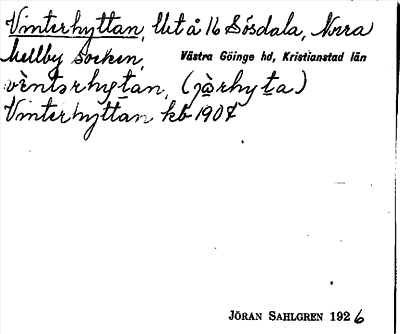 Vinterhyttan, Utå 16 Sösdala, Norra
Mellby Socken, Västra Göinge hd, Kristianstad län
vèntərhyt̲an, (jà̲rhyt̲a)
Vinterhyttan kb 1907
JÖRAN SAHLGREN 1926